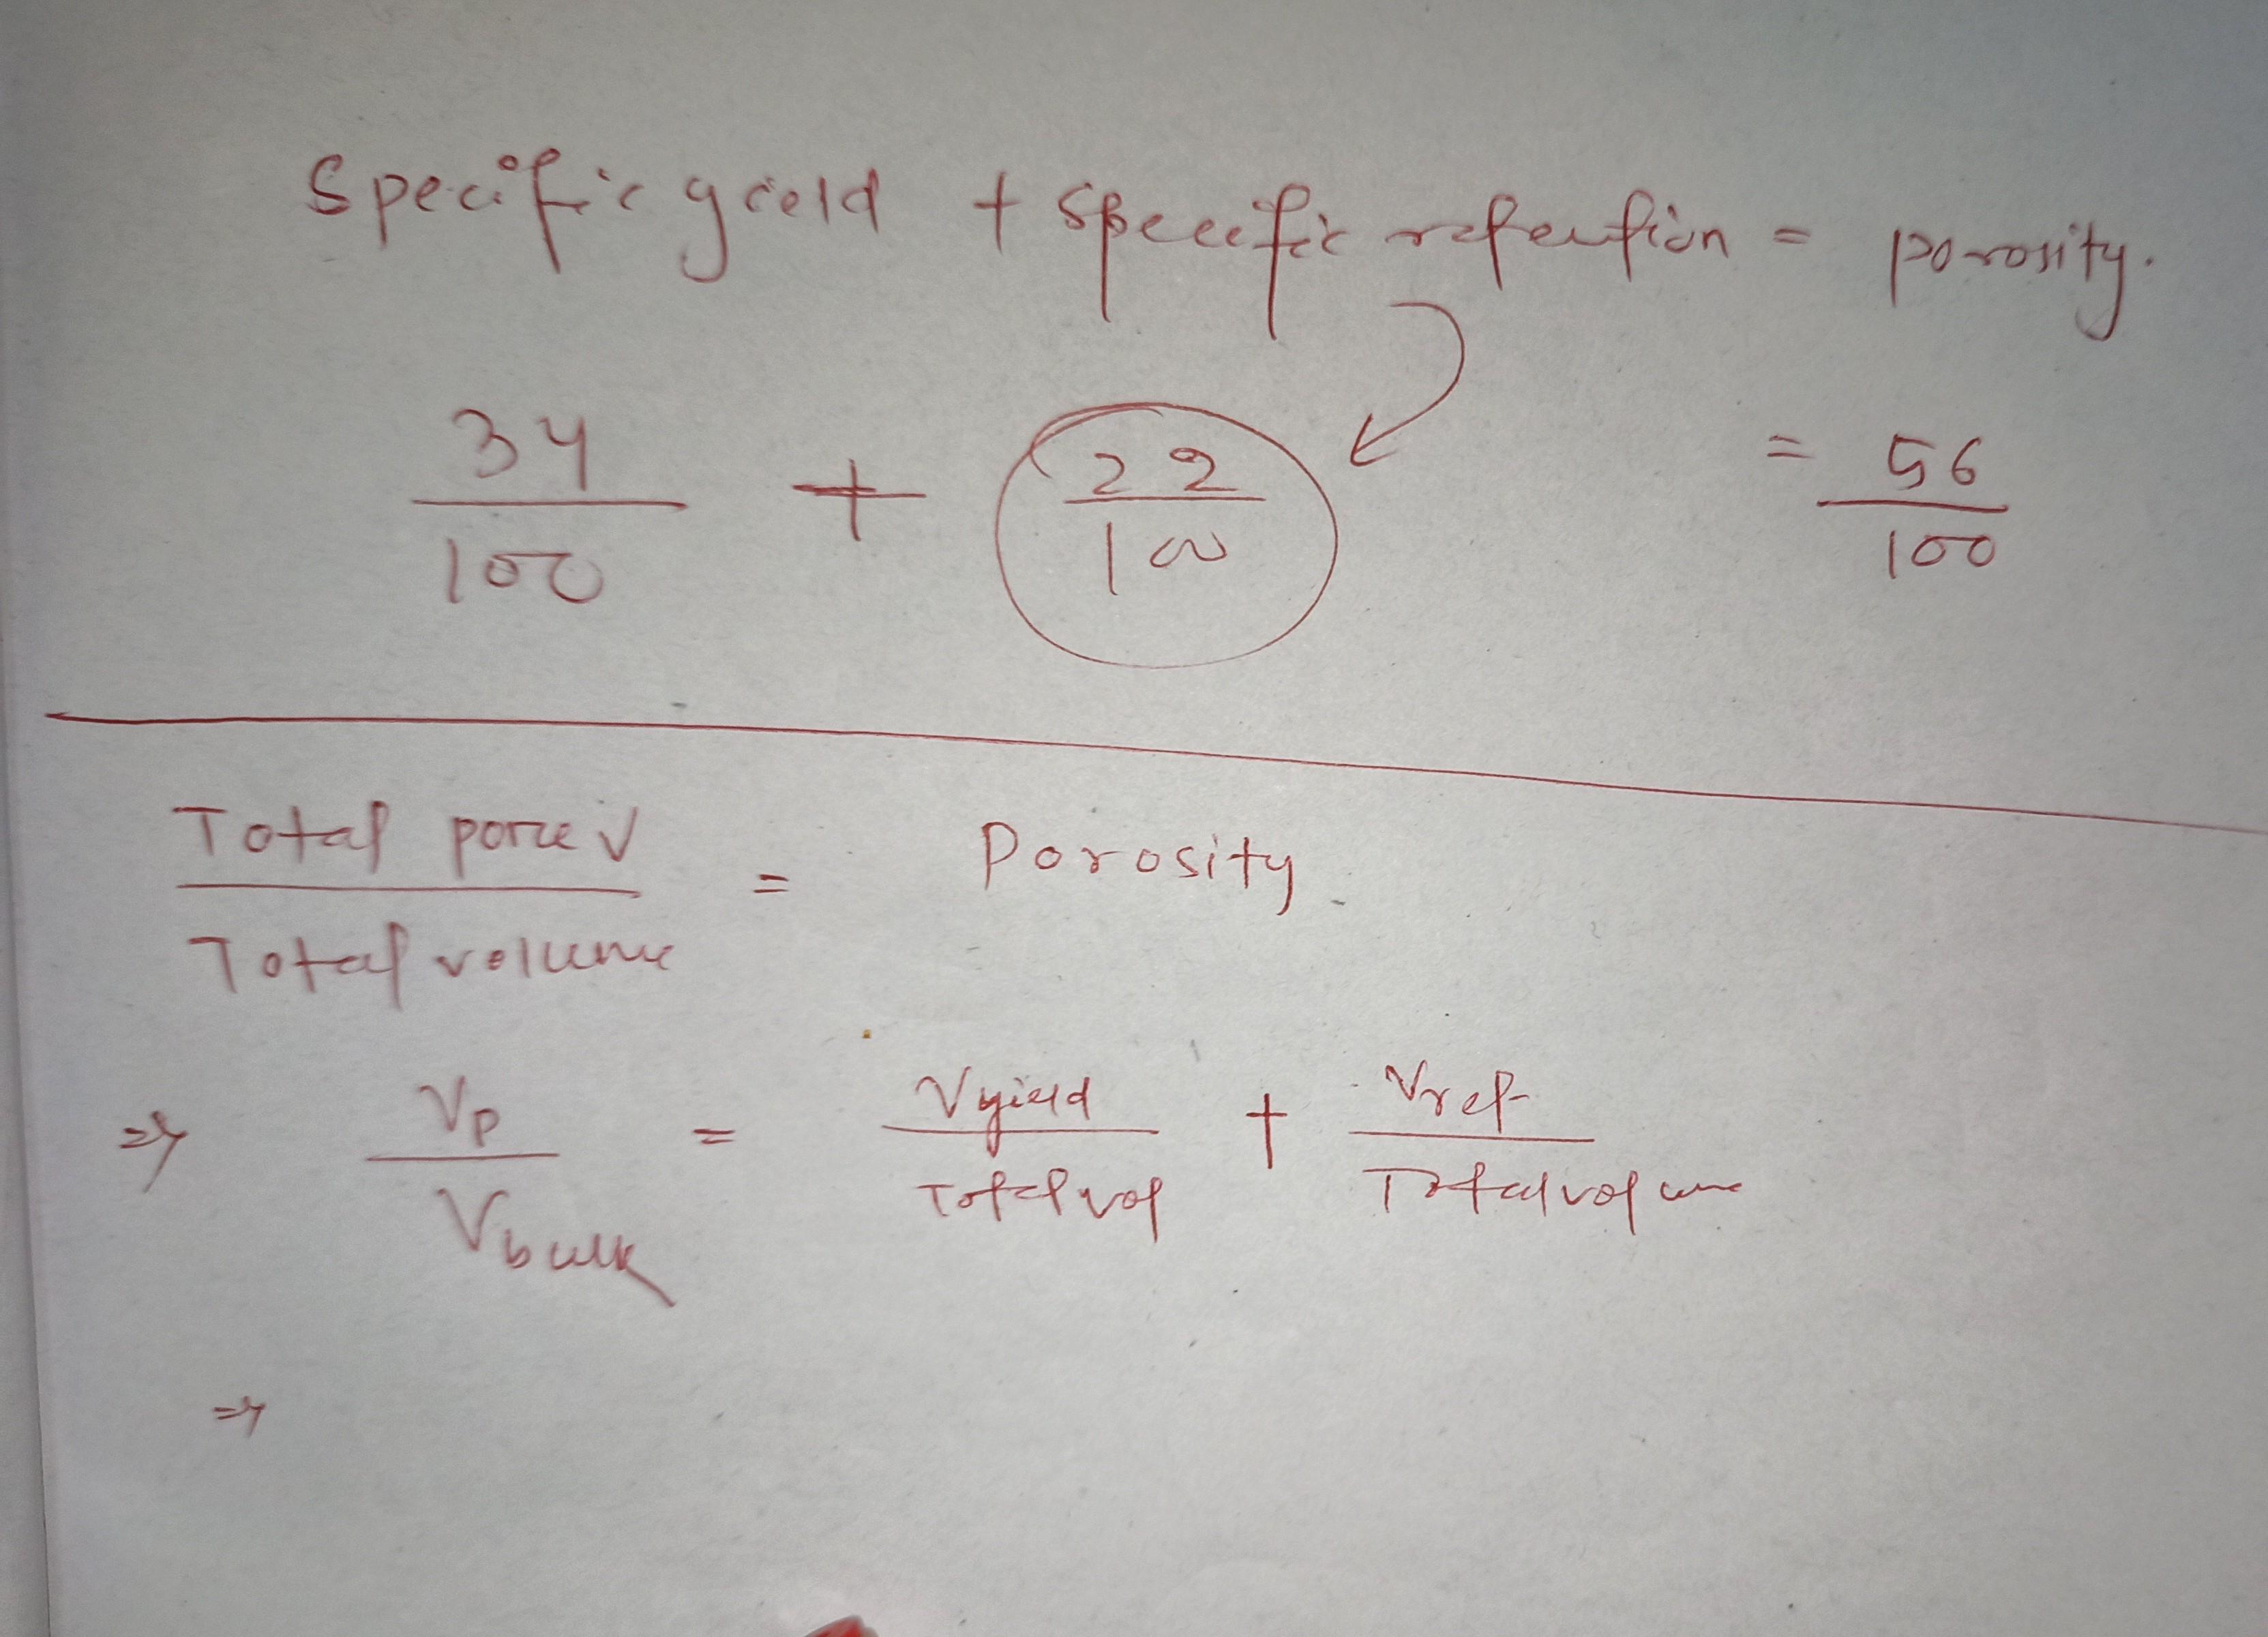 Specific yield + specific retention = porosity.
34/100 + 22/100 = 56/100
Total pore V / Total volume = Porosity
⇒ Vp / Vbulk = Vyield / Total vol + Vret / Total volume
⇒